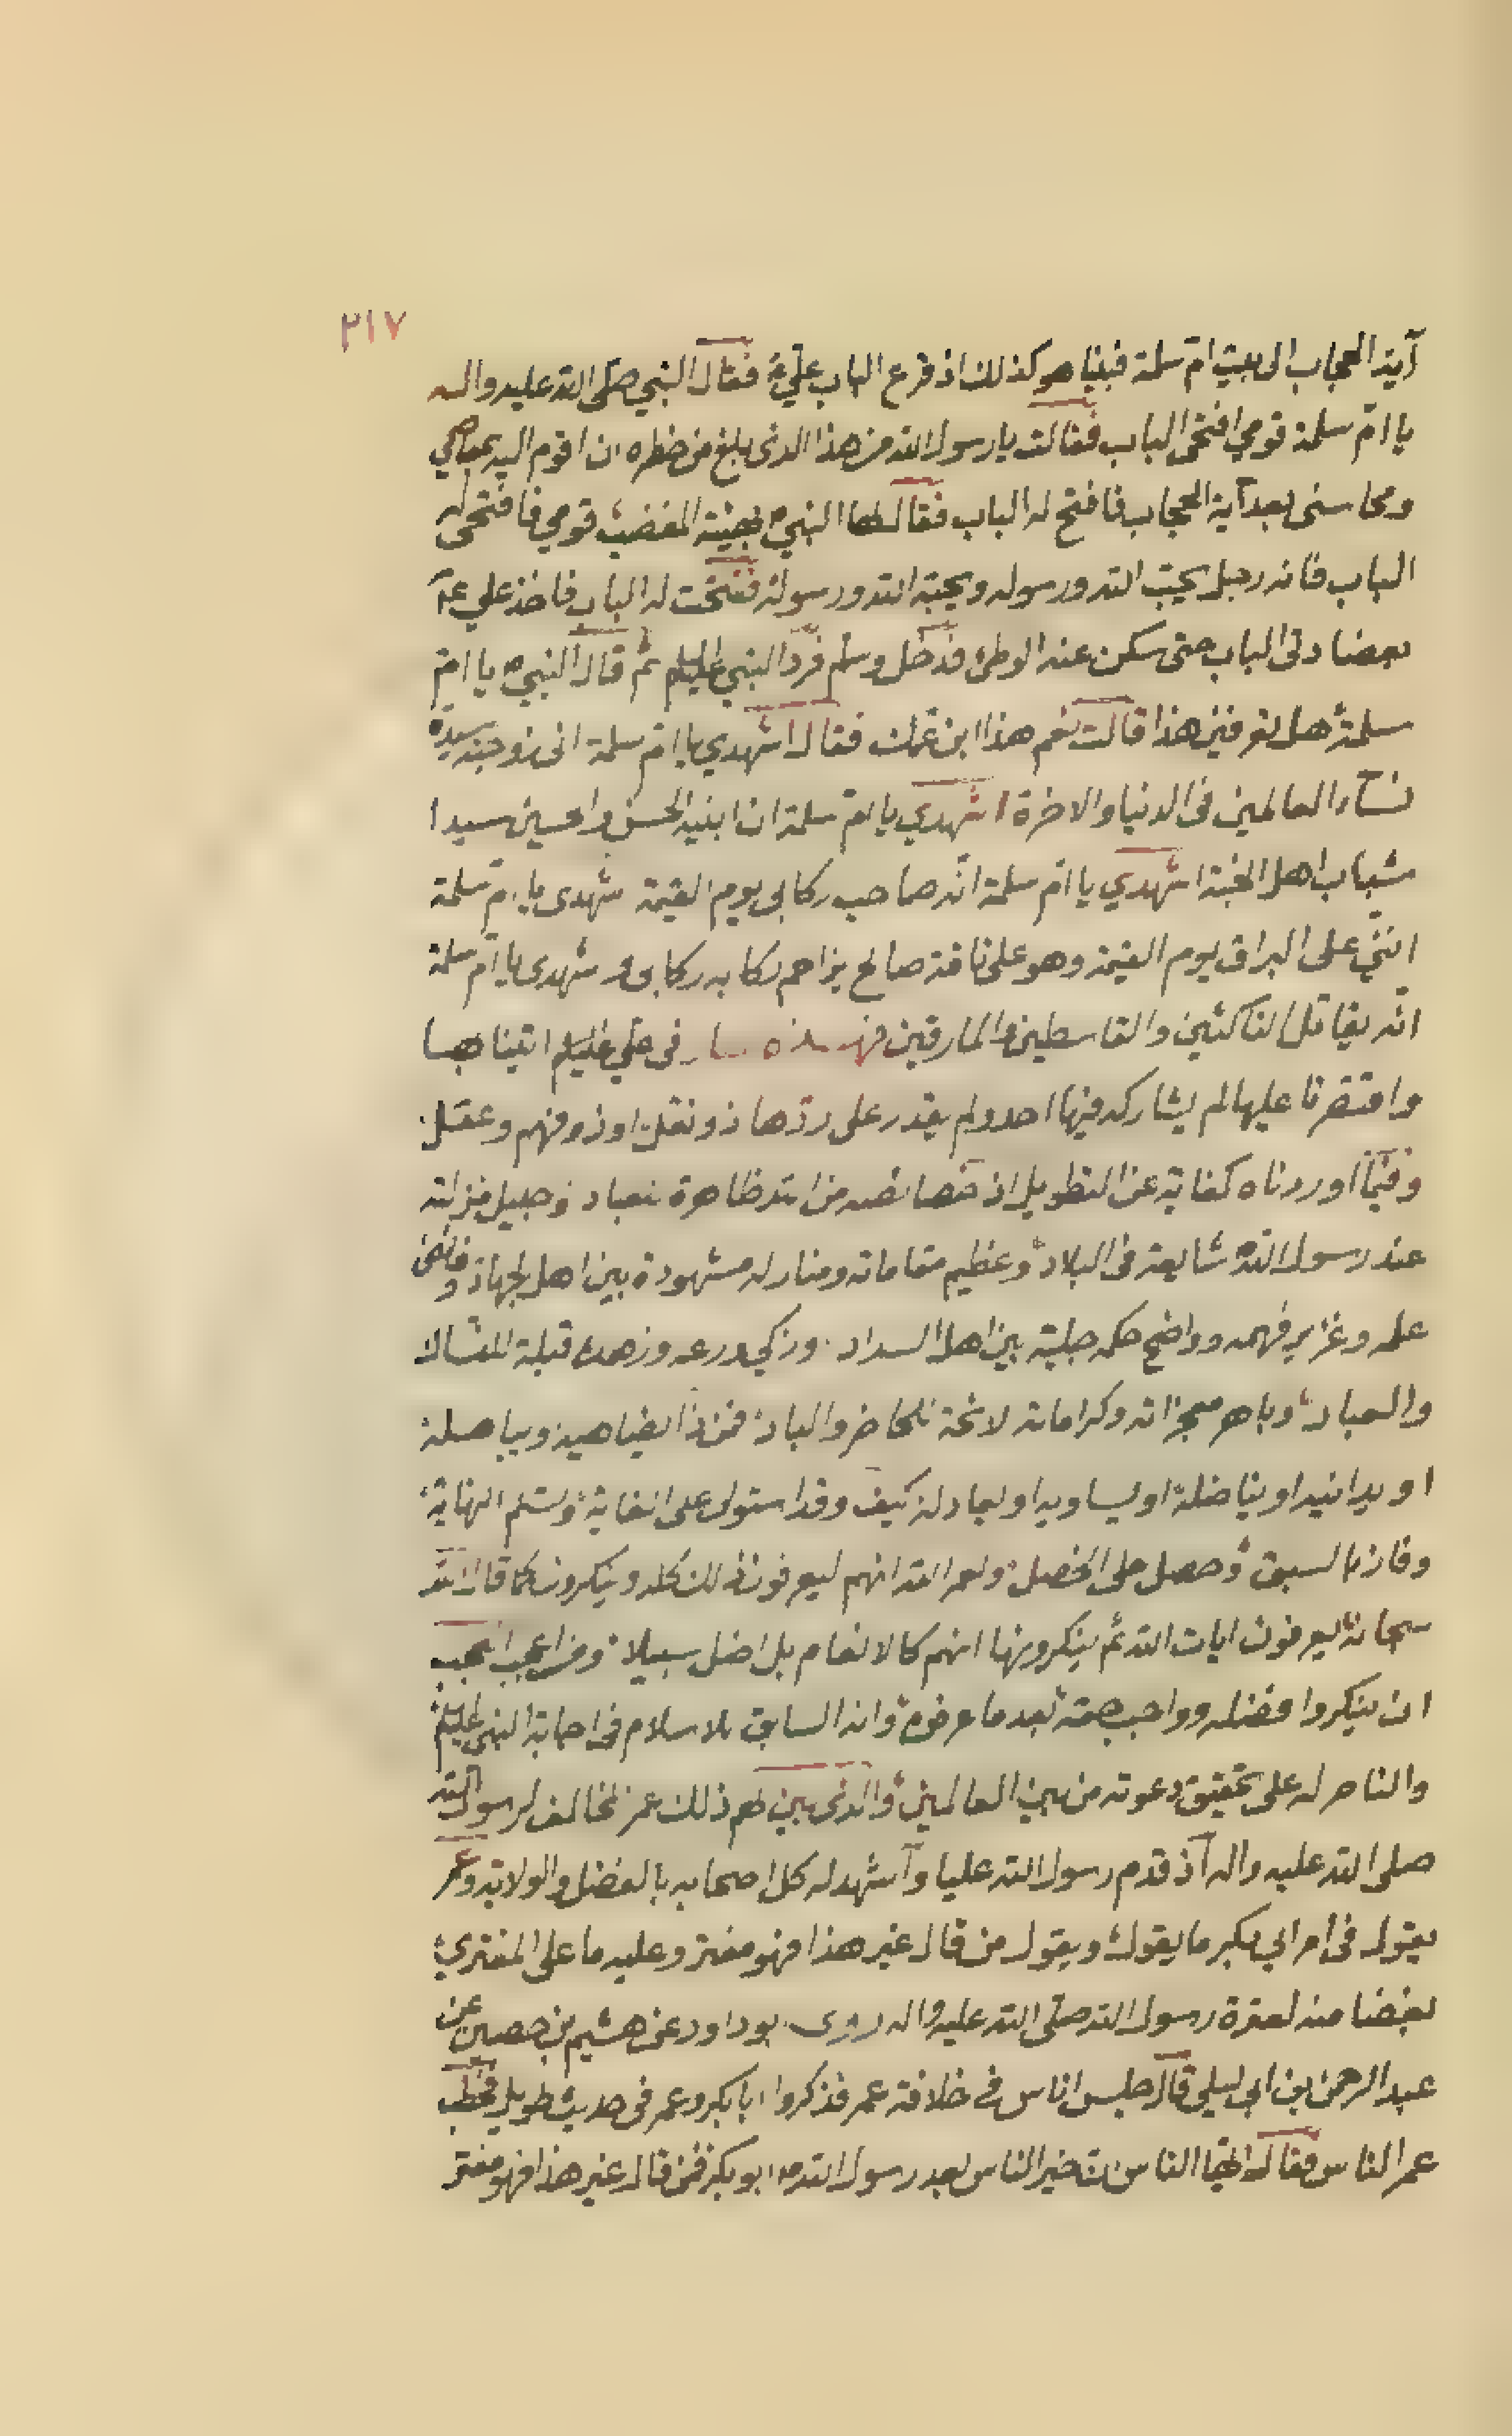 ٢١٧
آية الحجاب الى بيت ام سلمة فبينا هو كذلك اذ قرع الباب علي ع فقال النبي صلى الله عليه واله
يا ام سلمة قومي افتحى الباب فقالت يا رسول الله من هذا الذى بلغ من خطره ان اقوم اليه بمعاصمي
ومحاسنى بعد آية الحجاب فافتح له الباب فقال لها النبي بهيئة المغضب قومي فافتحى له
الباب فانه رجل يحب الله ورسوله ويحبه الله ورسوله ففتحت له الباب فاخذ علي ع
بعضادتى الباب حتى سكن عنه الوطئ فدخل وسلم فرد النبي عليلم ثم قال النبي يا ام
سلمة هل تعرفين هذا قالت نعم هذا ابن عمك فقال اشهدي يا ام سلمة انى زوجته سيدة
نساء العالمين فى الدنيا والاخرة اشهدي يا ام سلمة ان ابنيه الحسن والحسين سيدا
شباب اهل الجنة اشهدي يا ام سلمة انه صاحب ركابى يوم القيمة شهدى يا ام سلمة
اننى على البراق يوم القيمة وهو على ناقة صالح يزاحم ركابه ركابى و شهدى يا ام سلمة
انه يقاتل الناكثين والقاسطين والمارقين فى علي عليلم اتينا بها
واقتصرنا عليها لم يشاركه فيها احد ولم يقدر على ردها ذو نقل او ذو فهم وعقل
وفيما اوردناه كفاية عن التطويل اذ خصائصه من الله ظاهرة للعباد وجميل منزلته
عند رسول الله شايعة فى البلاد وعظيم مقاماته ومنازله مشهودة بين اهل الجهاد وفائض
علمه وغزير فهمه وواضح حكمه جلية بين اهل السداد وزكي ورعه وزهده قبلة
والعباد وباهر معجزاته وكراماته لائحة للحاضر والباد فمن ذا يضاهيه ويباهله
او يدانيه او يناضله او يساويه او يجادله كيف وقد استولى على الغاية وتسلم النهاية
وفاز بالسبق وحصل على الخصل ولعمر الله انهم ليعرفون ذلك كله وينكرونه كما قال الله
سبحانه يعرفون ايات الله ثم ينكرونها انهم كالانعام بل اضل سبيلا ومن اعجب العجب
ان ينكروا فضله وواجب حقه بعد ما عرفوه وانه السابق بالاسلام فى اجابة النبى عليلم
والناصر له على تحقيق دعوته من بين العالمين والذى بين لهم ذلك عمر المخالف لرسول الله
صلى الله عليه واله اذ قدم رسول الله عليا وأشهد له كل اصحابه بالفضل والولاية وعمر
يقول فى امر ابي بكر ما يقول ويقول من قال غير هذا فهو مفتر وعليه ما على المفتري
بغضا منه لعترة رسول الله صلى الله عليه واله روى ابو داود عن هشيم بن حصين عن
عبد الرحمن بن ابى ليلى قال جلس اناس فى خلافة عمر فذكروا ابا بكر وعمر فى حديث طويل فخطب
عمر الناس فقال ايها الناس ان خير الناس بعد رسول الله ص ابو بكر فمن قال غير هذا فهو مفتر